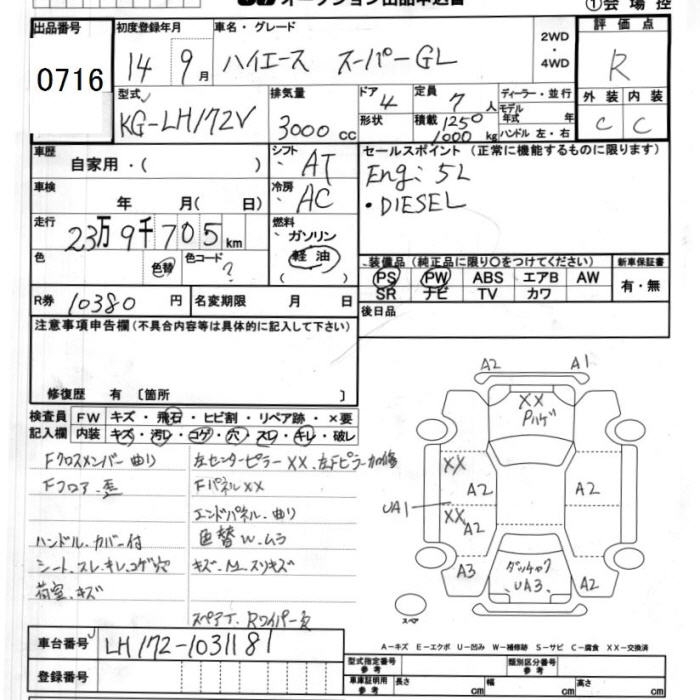 オークション出品申込書
①会場控
出品番号 0716
初度登録年月 14 9月
車名・グレード ハイエース スーパーGL
2WD・4WD
評価点 R
外装 C 内装 C
型式 KG-LH172V
排気量 3000cc
ドア 4
形状
定員 7人
積載 1250 1000kg
ディーラー・並行
モデル年式 年
ハンドル 左・右
車歴 自家用・( )
シフト AT
車検 年 月( 日)
冷房 AC
セールスポイント(正常に機能するものに限ります)
Eng: 5L
・DIESEL
走行 23万9千705km
燃料 ガソリン 軽油
色 色替 色コード ?
装備品(純正品に限り○をつけてください) 新車保証書
PS PW ABS エアB AW 有・無
SR ナビ TV カワ
R券 10380円 名変期限 月 日
後日品
注意事項申告欄(不具合内容等は具体的に記入して下さい)
修復歴 有 〔箇所 〕
検査員記入欄
FW キズ・飛石・ヒビ割・リペア跡・×要
内装 キズ・汚レ・コゲ・穴・スレ・キレ・破レ
Fクロスメンバー曲り 左センターピラーXX、左Fピラー加修
Fフロア歪 FパネルXX
エンドパネル曲り
ハンドル、カバー付 色替W、ムラ
シート、スレ、キレ、コゲ穴 キズ、スリキズ
荷室、キズ
スペアT、Rワイパー欠
A2 A1
XX
Pハゲ
XX
A2 A2
UA1
XX
A2
A3 A2
ダッチャク
UA3
スペア
A-キズ E-エクボ U-凹み W-補修跡 S-サビ C-腐食 XX-交換済
車台番号 LH172-1031181
型式指定番号 参考 類別区分番号 参考
登録番号
車庫証明用 参考 長さ 幅 高さ